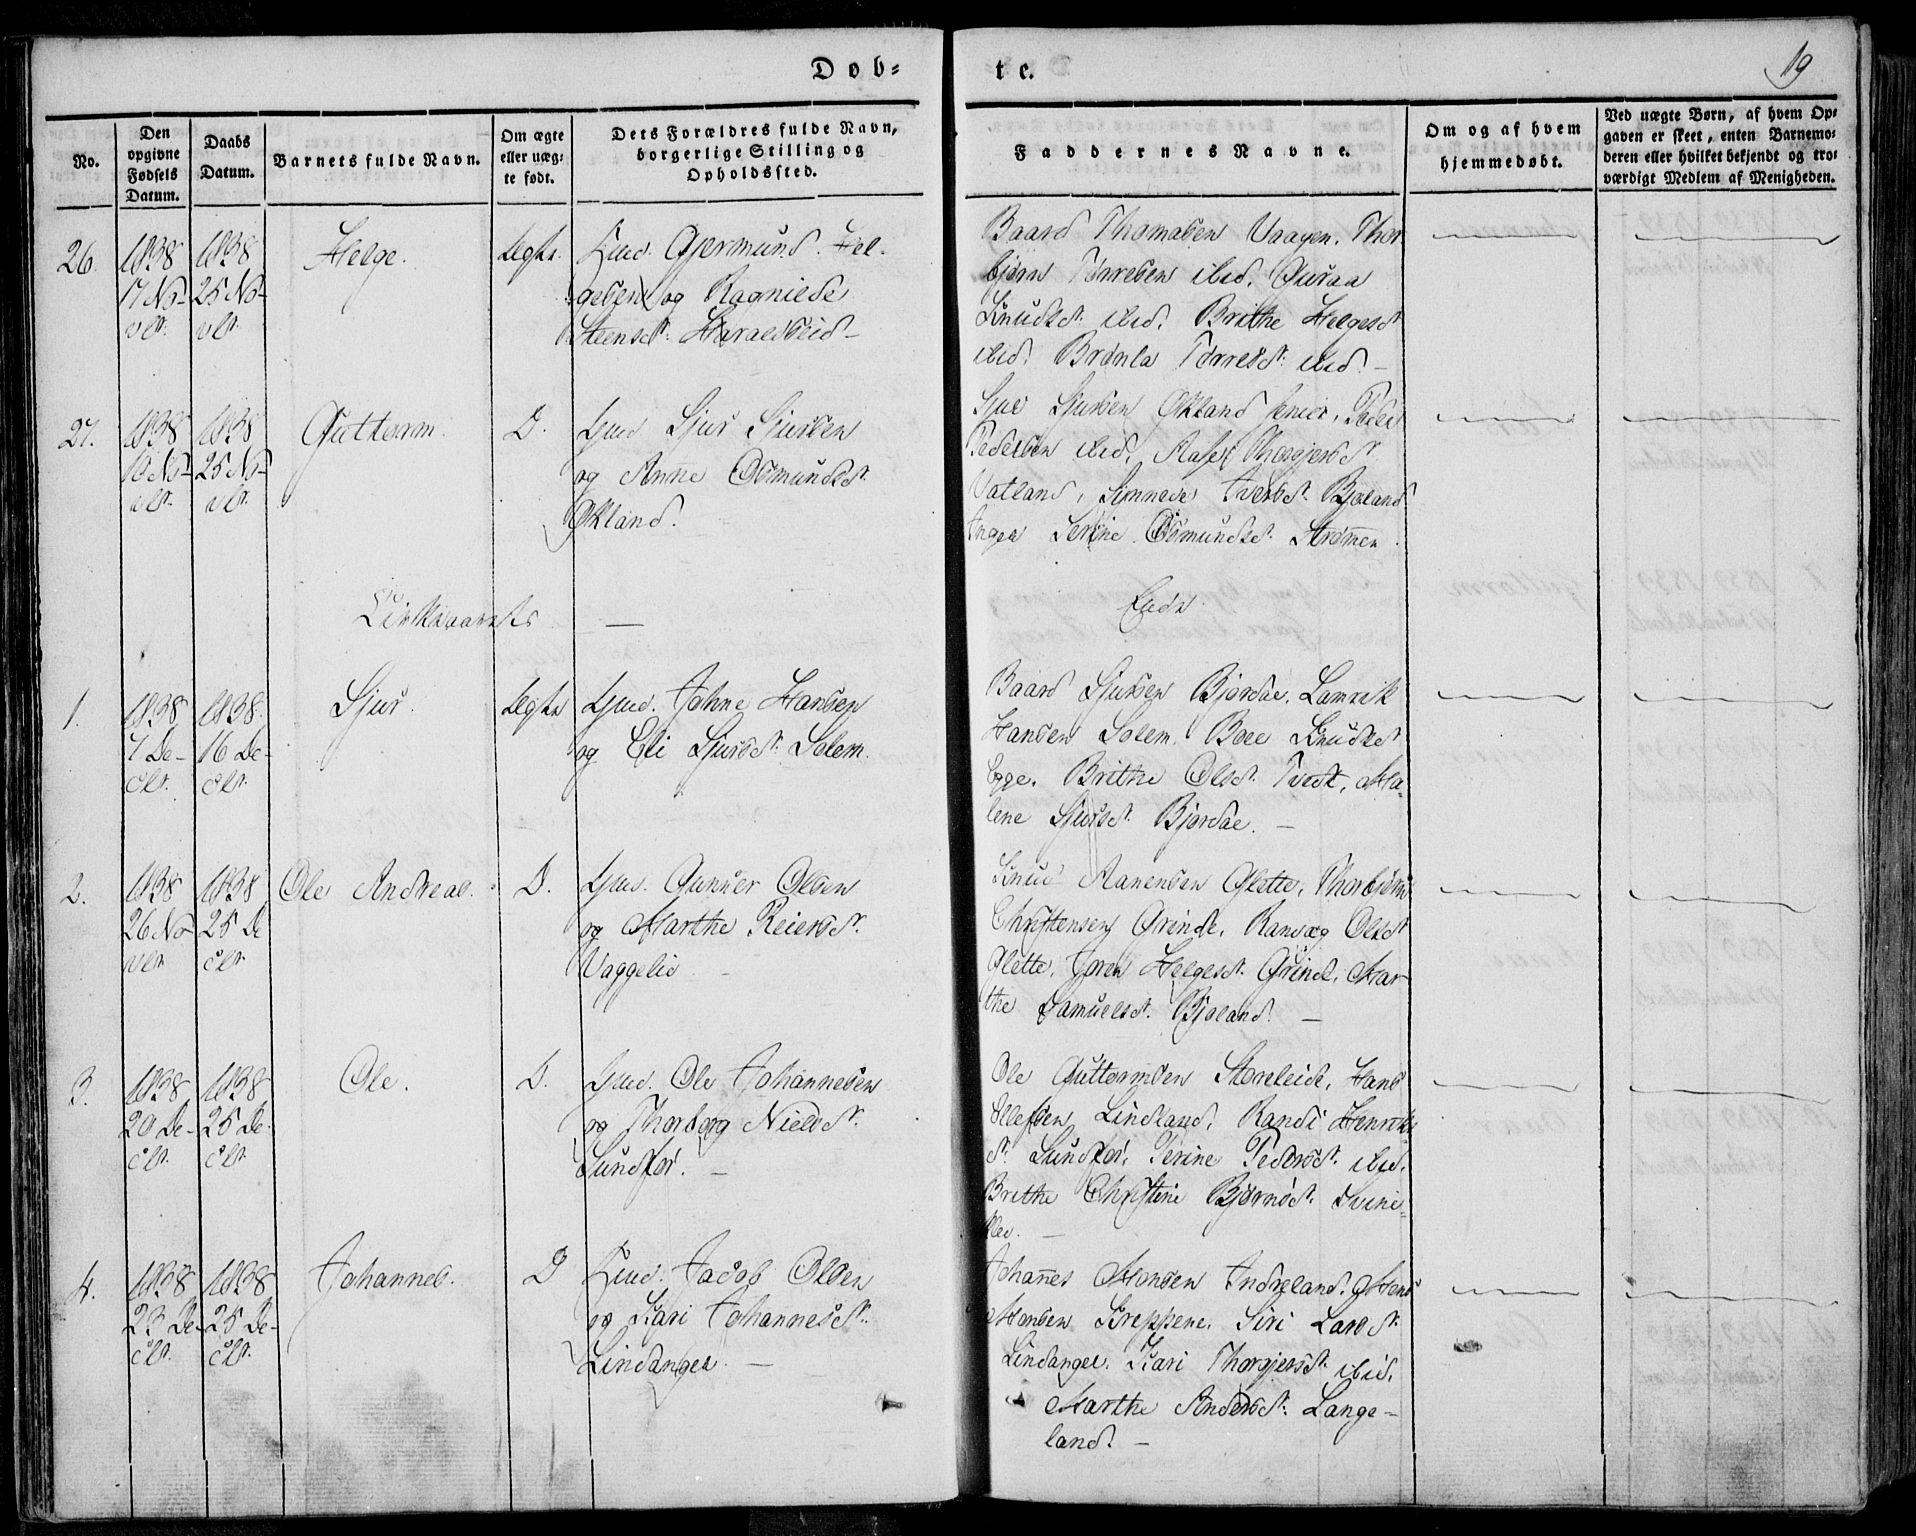 Døb-
te.
19
No.
Den opgivne Fødsels Datum.
Daabs Datum.
Barnets fulde Navn.
Om ægte eller uægte født.
Dets Forældres fulde Navn, borgerlige Stilling og Opholdssted.
Faddernes Navne.
Om og af hvem hjemmedøbt.
Ved uægte Børn, af hvem Opgaven er skeet, enten Barnemoderen eller hvilket bekjendt og troværdigt Medlem af Menigheden.
26.
1838
17 No-
vbr.
1838
25 No-
vbr.
Helge.
Ægte.
Gjermund Hel-
gesen og Ragnilde
Steensdr. Haraldseid -
Baard Thomasen Vaagen. Thor-
bjørn Tørresen ibid.
Knudsdr. ibid. Brithe Helgesdr.
ibid. Brønla Tørresdr. ibid. -
27.
1838
10 No-
vbr.
1838
25 No-
vbr.
Guttorm.
D.
Gmd. Sjur Sjursen
og Anne Osmundsdr.
Økland.
Sjur Sjursen Økland senior, Peder
Pedersen ibid. Thorgjersdr.
Vatland, Simnede Iversdr. Bjoland
Inger Serine Osmundsdr. Strømen.
Kirkeaarets
Ende
1.
1838
7 De-
cbr.
1838.
16 De-
cbr.
Sjur.
Ægte
Gmd. Johne Hansen
og Eli Sjursdr. Solem.
Baard Sjursen Bjordal. Lamrik
Hansen Solem. Boel Knudsdr.
Egge. Brithe Olsdr. Tvedt, Ma-
lene Sjursdr. Bjordal. -
2.
1838
26 No-
vbr.
1838
25 De-
cbr.
Ole Andreas.
D.
Gmd. Gunner Olsen
og Marthe Reiersdr.
Vaggelid -
Knud Aanensen Glette, Thorbjørn
Christensen Grinde, Ranveg Olsdr.
Glette, Joren Helgesdr. Grinde, Mar-
the Samuelsdr. Bjoland. -
3.
1838
20 De-
cbr.
1838
25 De-
cbr.
Ole.
D.
Gmd. Ole Johannesen
og Thorborg Nielsdr.
Sundfør. -
Ole Guttormsen Storeleide, Hans
Ellefsen Lindland, Randi Henriks-
dr. Sundfør, Serine Pedersdr. ibid.
Brithe Christine Bjørnsdr. Svine-
klev. -
4.
1838
23 De-
cbr.
1838
25 De-
cbr.
Johannes.
D
Jacob Olsen
og Kari Johannesdr.
Lindanger. -
Johannes Monsen Indreland. Mons
Monsen Kreppene. Siri Larsdr.
Lindanger. Kari Thorgjersdr. ibid.
Marthe Andersdr. Lange-
land. -